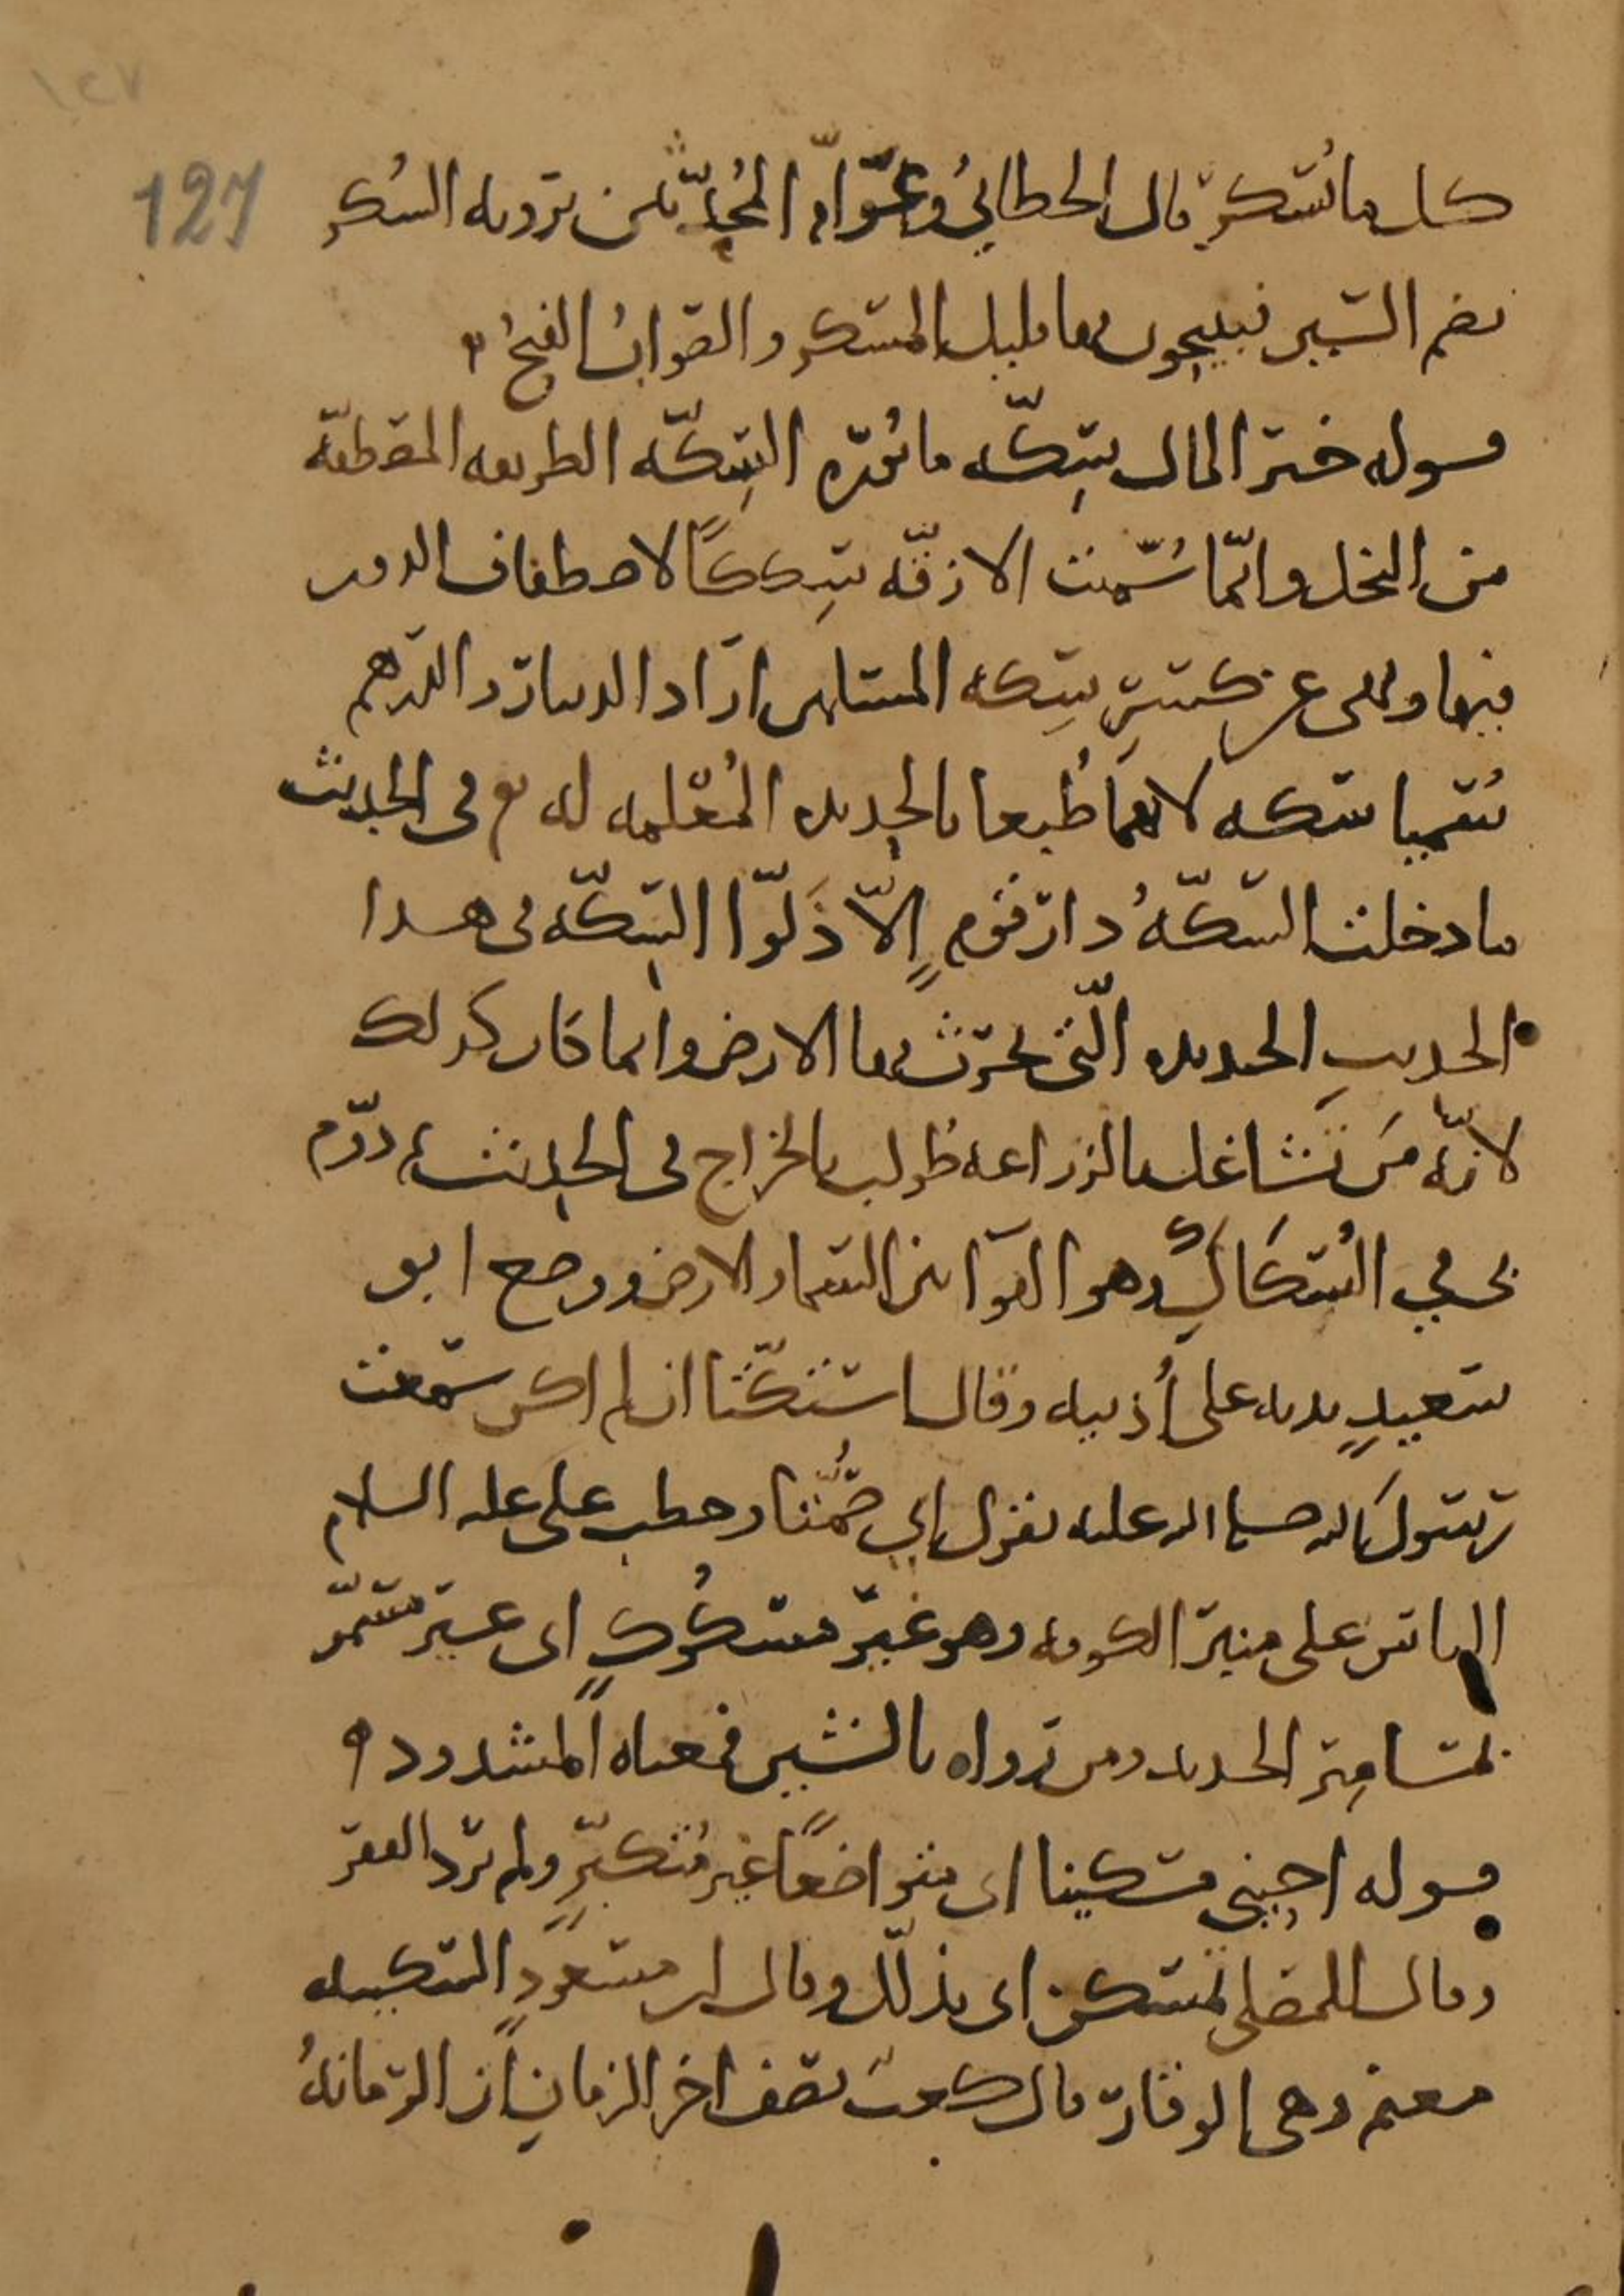 ١٢٧
127
كل ما يُسكر قال الخطابيُ وعوامّ المُحدّثين يرويه السُكر
بضم السين فيبيحون بها قليل المسكر والصوابُ الفتحُ
قوله خير المال سِكّه مابُورة السِكّه الطريقه المصطفّه
من النخل وانّما سُمّيت الازقّه سِككًا لاصطفاف الدور
فيها ونهى عن كسر سكه المسلمين اراد الدينار والدرهم
سُميا سكه لانهما طُبعا بالحديده المُعلمه له في الحديث
ما دخلت السكّهُ دار قومٍ إلّا ذَلّوا السِكّه في هذا
الحديثِ الحديده الّتي يحرث بها الارض وانما كان كذلك
لانّه مَن تشاغل بالزراعه طُولب بالخراج في الحديث درّم
يحيي السُكاكِ وهو الهوا بين السما والارض ووضع ابو
سعيدٍ يديه على أُذنيه وقال استكّتا ان لم اكن سمعت
رسول الله صلى الله عليه يقول اي صُمّتا وخطب علي عليه السلام
الناس على منبر الكوفه وهو غير مسكُوكٍ اى غير مسمّر
بمسامير الحديد ومن رواه بالشين فمعناه المشدود
قوله احيِني مسكينا اى متواضعًا غير مُتكبّرٍ ولم يرد الفقر
وقال للمصلي تمسكن اى تذلّل وقال ابن مسعودٍ السكينه
مغنم وهى الوقار قال كعب يصف اخر الزمانِ ان الرمانهُ